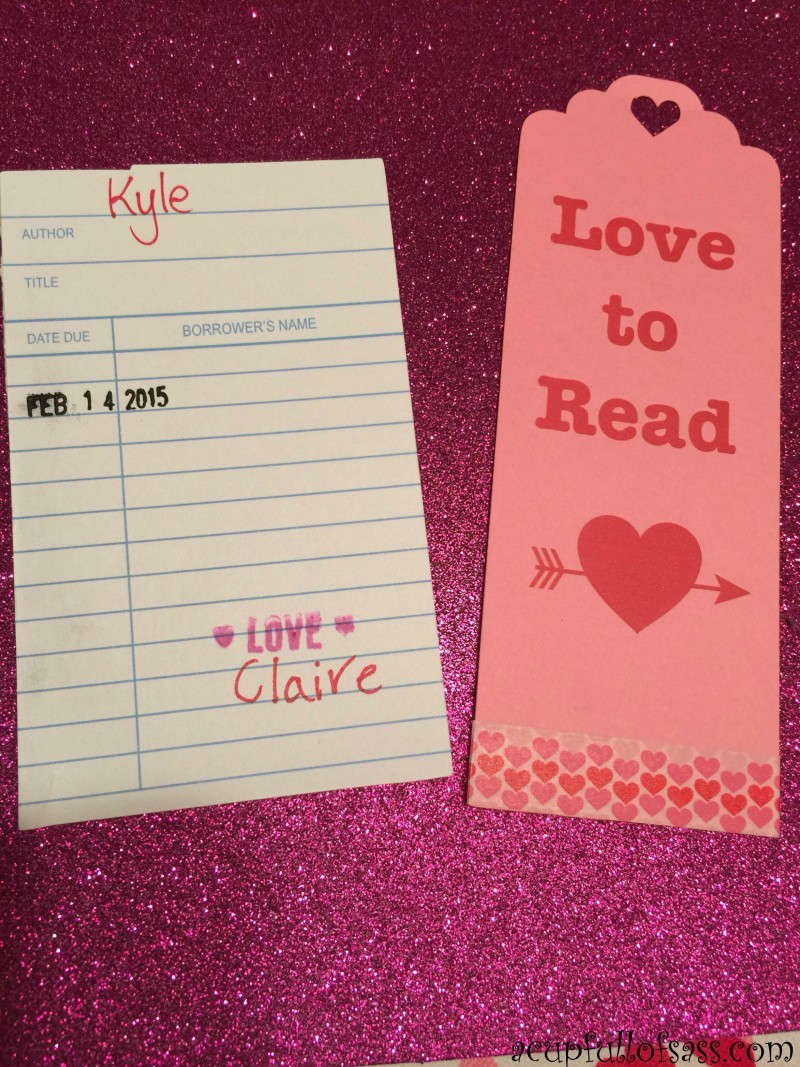 Kyle
AUTHOR
TITLE
DATE DUE BORROWER'S NAME
FEB 14 2015
LOVE
Claire
Love
to
Read
acupfullofsass.com